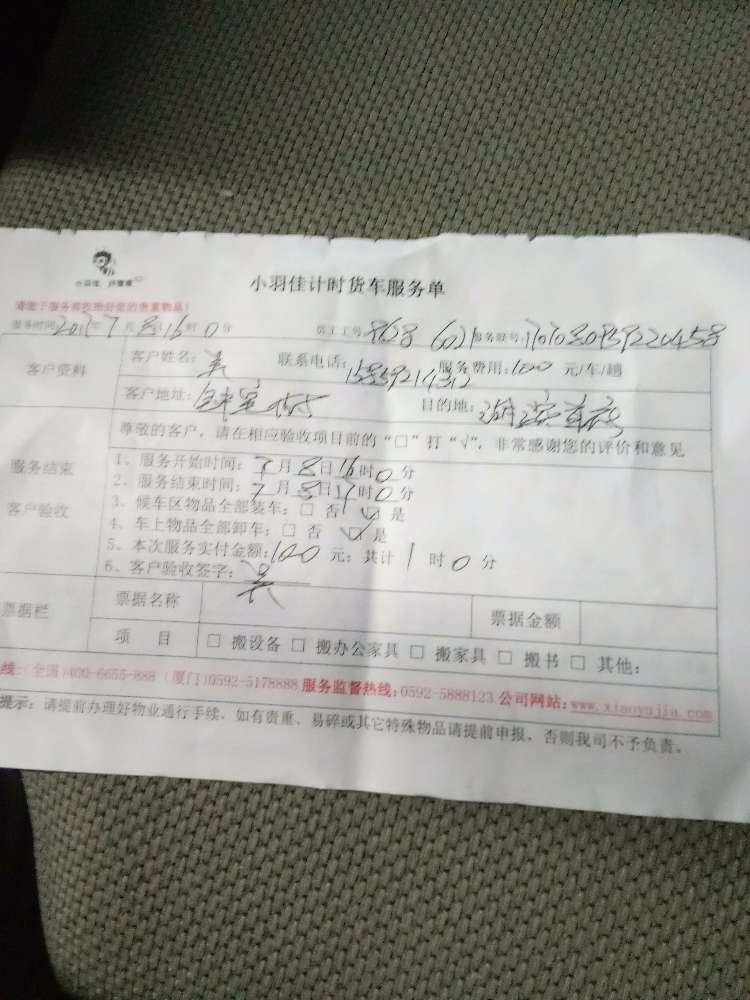 小羽佳计时货车服务单
请您于服务前收拾好您的贵重物品!
服务时间: 年7月8日16时0分 员工工号: 8628 6021 服务联号:
客户资料
客户姓名:吴 联系电话: 服务费用:100元/车/趟
客户地址: 目的地:
尊敬的客户,请在相应验收项目前的“□”打“√”,非常感谢您的评价和意见
服务结束
客户验收
1、服务开始时间:7月8日16时0分
2、服务结束时间:7月8日17时0分
3、候车区物品全部装车:□ 否 ☑ 是
4、车上物品全部卸车:□ 否 ☑ 是
5、本次服务实付金额:100元;共计1时0分
6、客户验收签字:吴
票据栏
票据名称 票据金额
项 目 □ 搬设备 □ 搬办公家具 □ 搬家具 □ 搬书 □ 其他:
线:(全国)400-6655-888 (厦门)0592-5178888 服务监督热线:0592-5888123 公司网站:www.xiaoyujia.com
提示:请提前办理好物业通行手续,如有贵重、易碎或其它特殊物品请提前申报,否则我司不予负责。